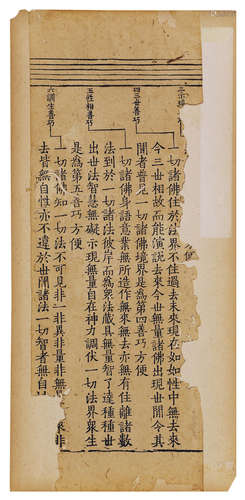 四三世善巧
一切諸佛住於法界不住過去未來現在如如性中無去來
今三世相故而能演說去來今世無量諸佛出現世間令其
聞者普見一切諸佛境界是為第四善巧方便
五性相善巧
一切諸佛身語意業無所造作無來無去亦無有住離諸數
法到於一切諸法彼岸而為眾法藏具無量智了達種種世
出世法智慧無礙示現無量自在神力調伏一切法界眾生
是為第五善巧方便
六調生善巧
一切諸佛知一切法不可見非一非異非量非無 來非
去皆無自性亦不違於世間諸法一切智者無自